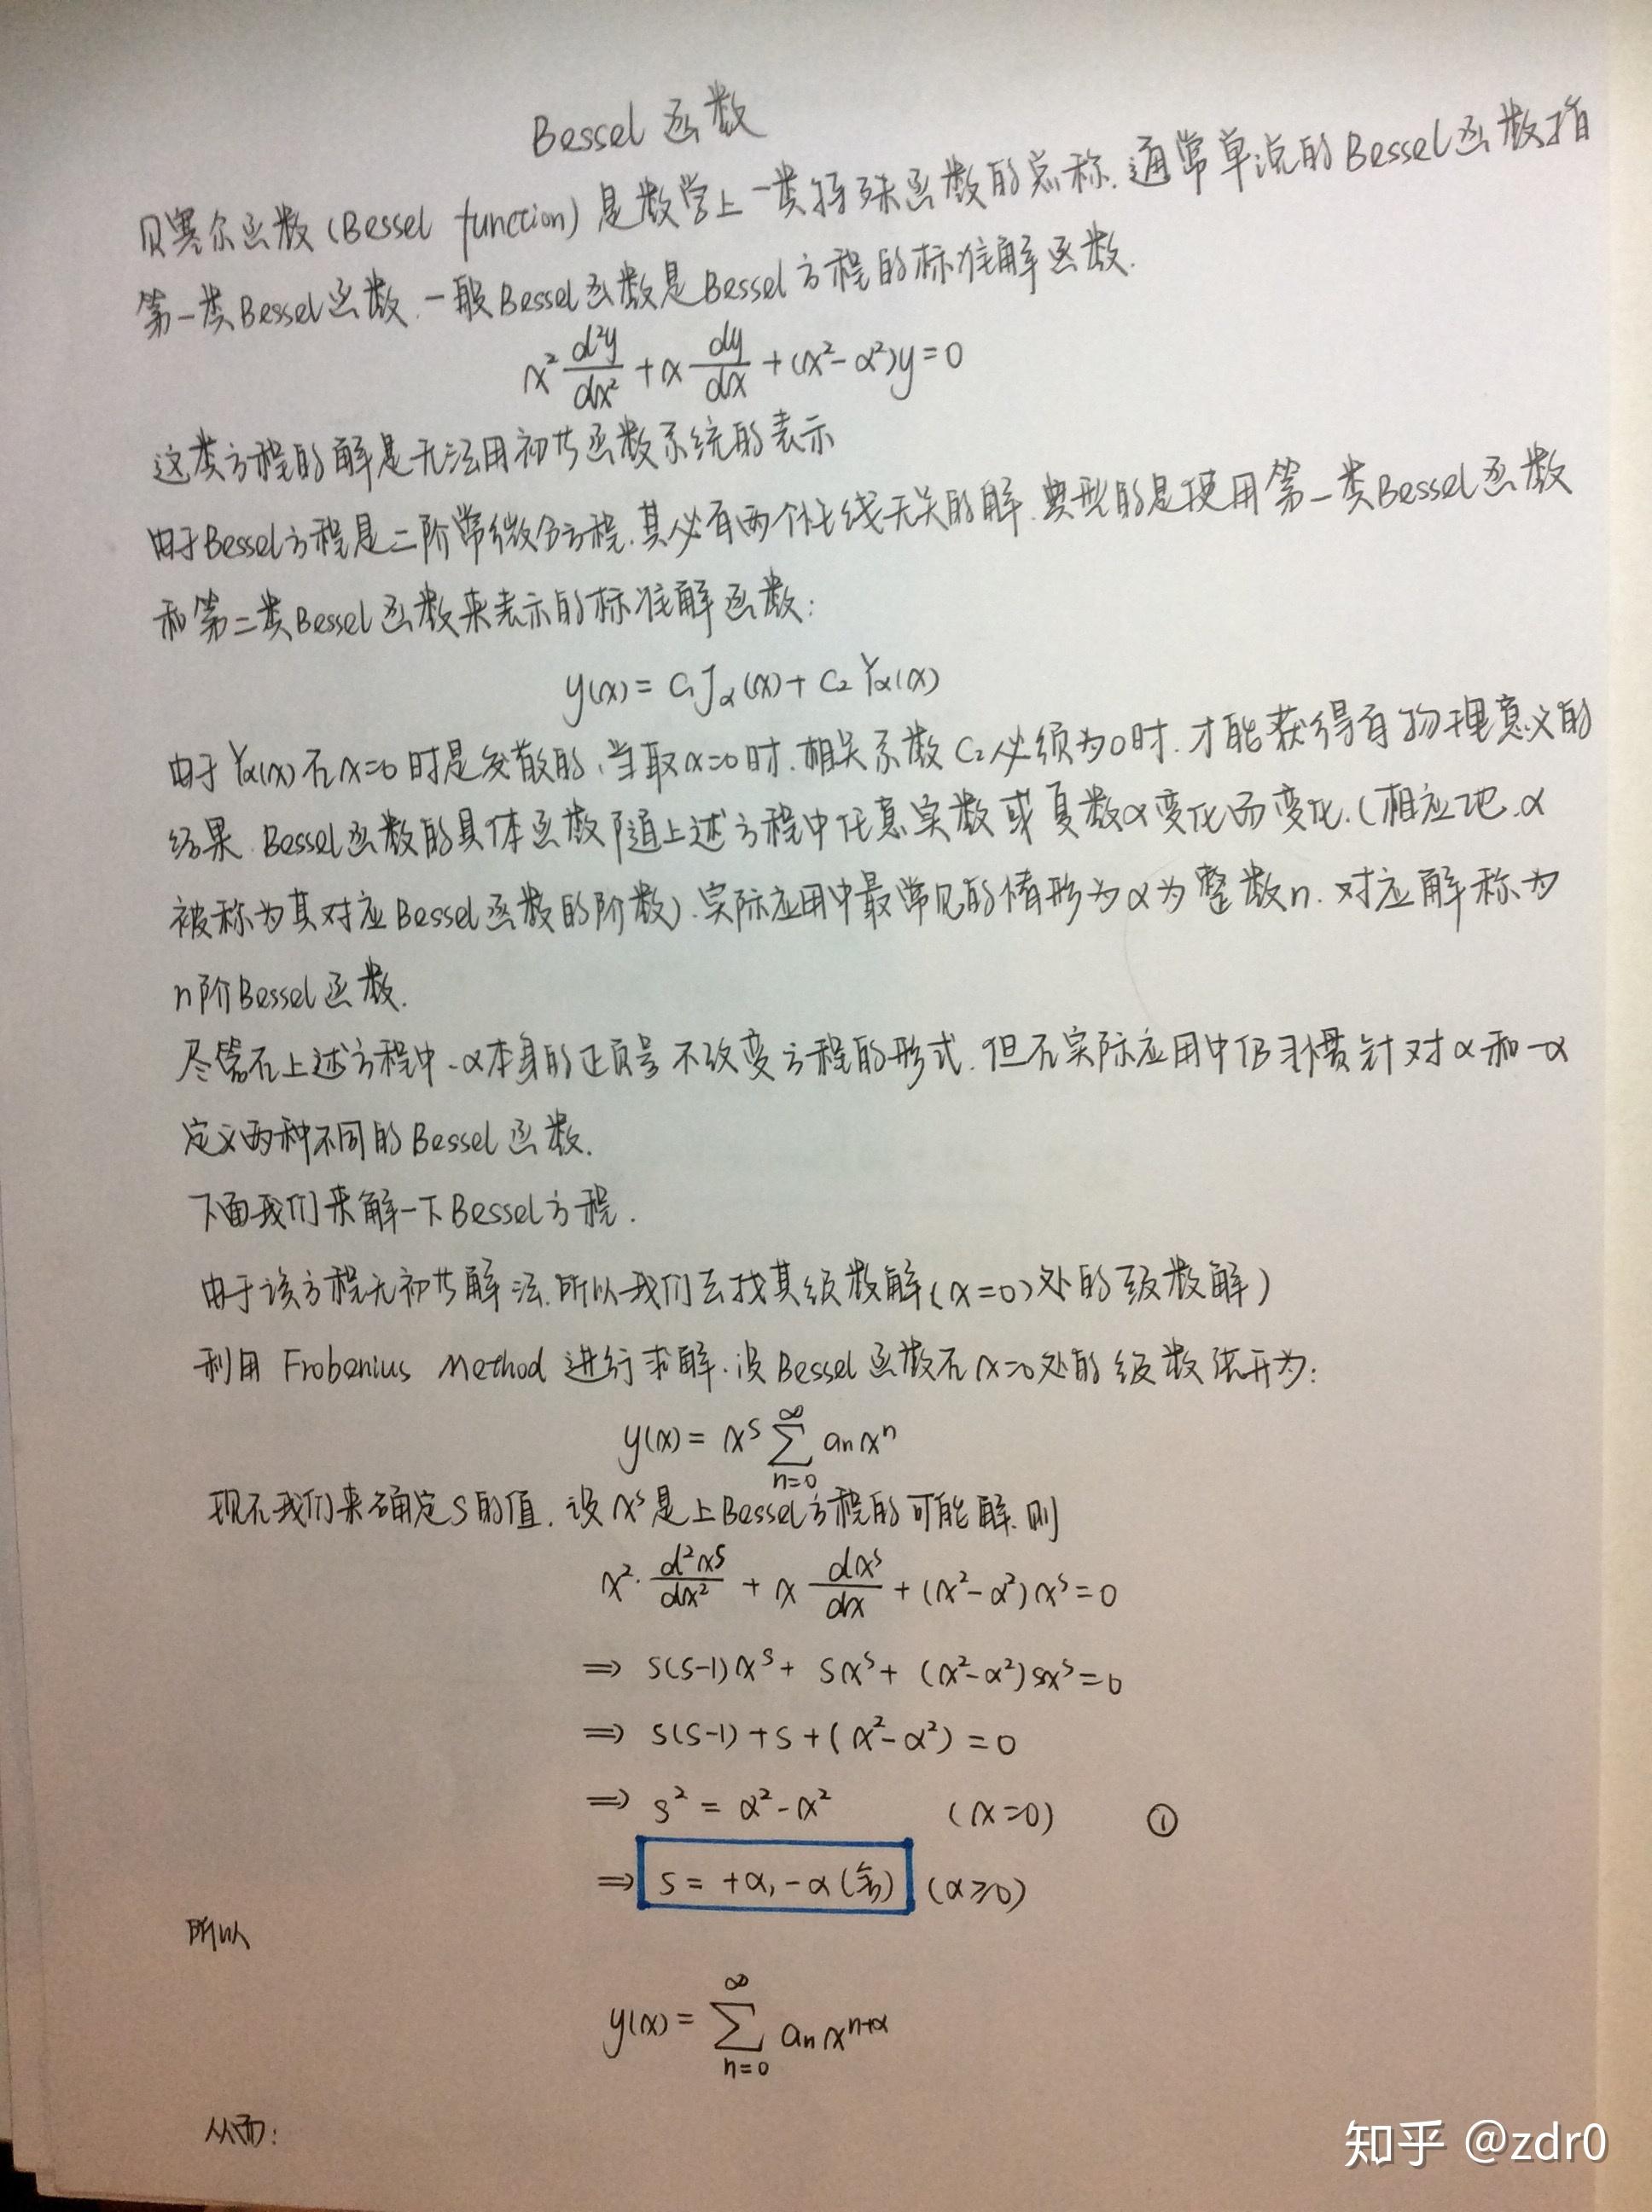 Bessel函数
贝塞尔函数(Bessel function)是数学上一类特殊函数的总称.通常单说的Bessel函数指
第一类Bessel函数.一般Bessel函数是Bessel方程的标准解函数.
x² d²y/dx² + x dy/dx + (x²-α²)y=0
这类方程的解是无法用初等函数系统的表示
由于Bessel方程是二阶常微分方程.其必有两个性线无关的解.典型的是使用第一类Bessel函数
和第二类Bessel函数来表示的标准解函数:
y(x)= C₁Jα(x)+ C₂Yα(x)
由于Yα(x)在x=0时是发散的,当取x=0时.相关系数C₂必须为0时.才能获得有物理意义的
结果.Bessel函数的具体函数随上述方程中任意实数或复数α变化而变化.(相应地.α
被称为其对应Bessel函数的阶数).实际应用中最常见的情形为α为整数n.对应解称为
n阶Bessel函数.
尽管在上述方程中.α本身的正负号不改变方程的形式.但在实际应用中仍习惯针对α和-α
定义两种不同的Bessel函数.
下面我们来解一下Bessel方程.
由于该方程无初等解法.所以我们去找其级数解(x=0)处的级数解)
利用 Frobenius Method 进行求解.设Bessel函数在x=0处的级数展开为:
y(x)= xˢ ∑_{n=0}^{∞} aₙxⁿ
现在我们来确定s的值.设xˢ是上Bessel方程的可能解.则
x²· d²xˢ/dx² + x dxˢ/dx + (x²-α²)xˢ=0
⇒ s(s-1)xˢ+ sxˢ+ (x²-α²)sxˢ=0
⇒ s(s-1)+s+(x²-α²)=0
⇒ s² = α²-x² (x=0) ①
⇒ s= +α,-α(舍) (α≥0)
所以
y(x)= ∑_{n=0}^{∞} aₙxⁿ⁺ᵅ
从而:
知乎 @zdr0